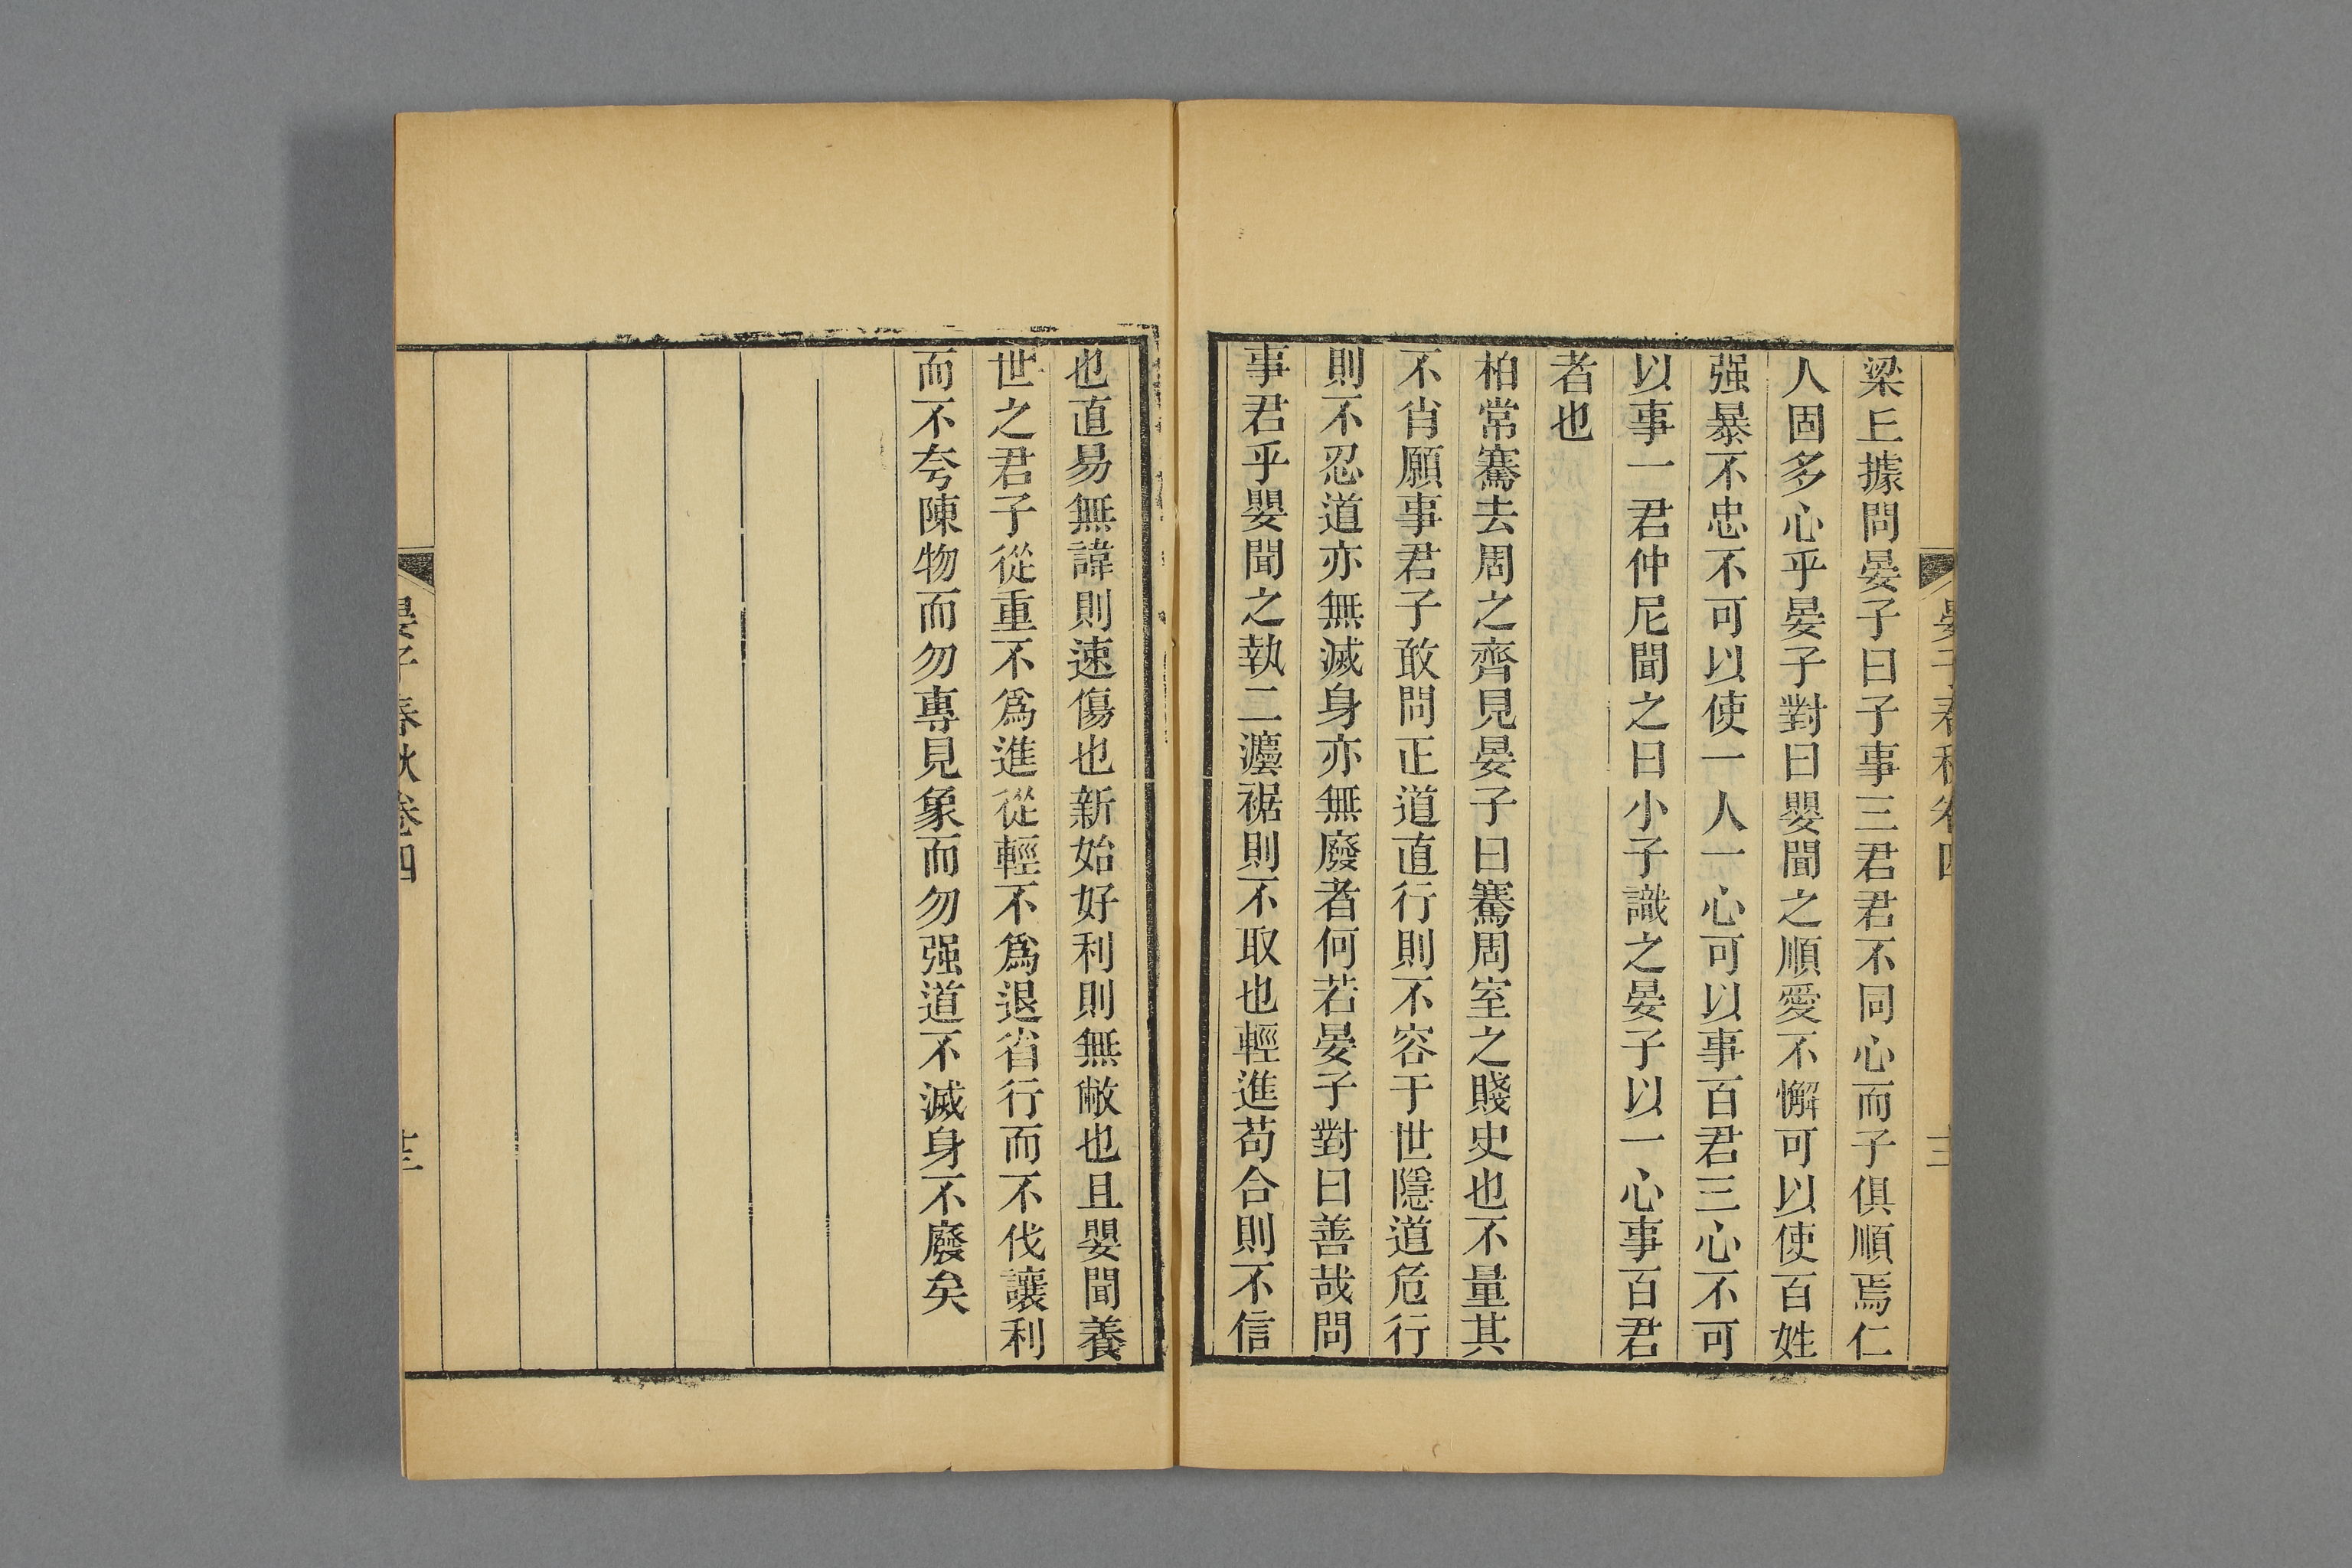 晏子春秋卷四
梁丘據問晏子曰子事三君君不同心而子俱順焉仁
人固多心乎晏子對曰嬰聞之順愛不懈可以使百姓
强暴不忠不可以使一人一心可以事百君三心不可
以事一君仲尼聞之曰小子識之晏子以一心事百君
者也
柏常騫去周之齊見晏子曰騫周室之賤史也不量其
不肖願事君子敢問正道直行則不容于世隱道危行
則不忍道亦無滅身亦無廢者何若晏子對曰善哉問
事君乎嬰聞之執二灋裾則不取也輕進苟合則不信
也直易無諱則速傷也新始好利則無敝也且嬰聞養
世之君子從重不爲進從輕不爲退省行而不伐讓利
而不夸陳物而勿專見象而勿强道不滅身不廢矣
晏子春秋卷四